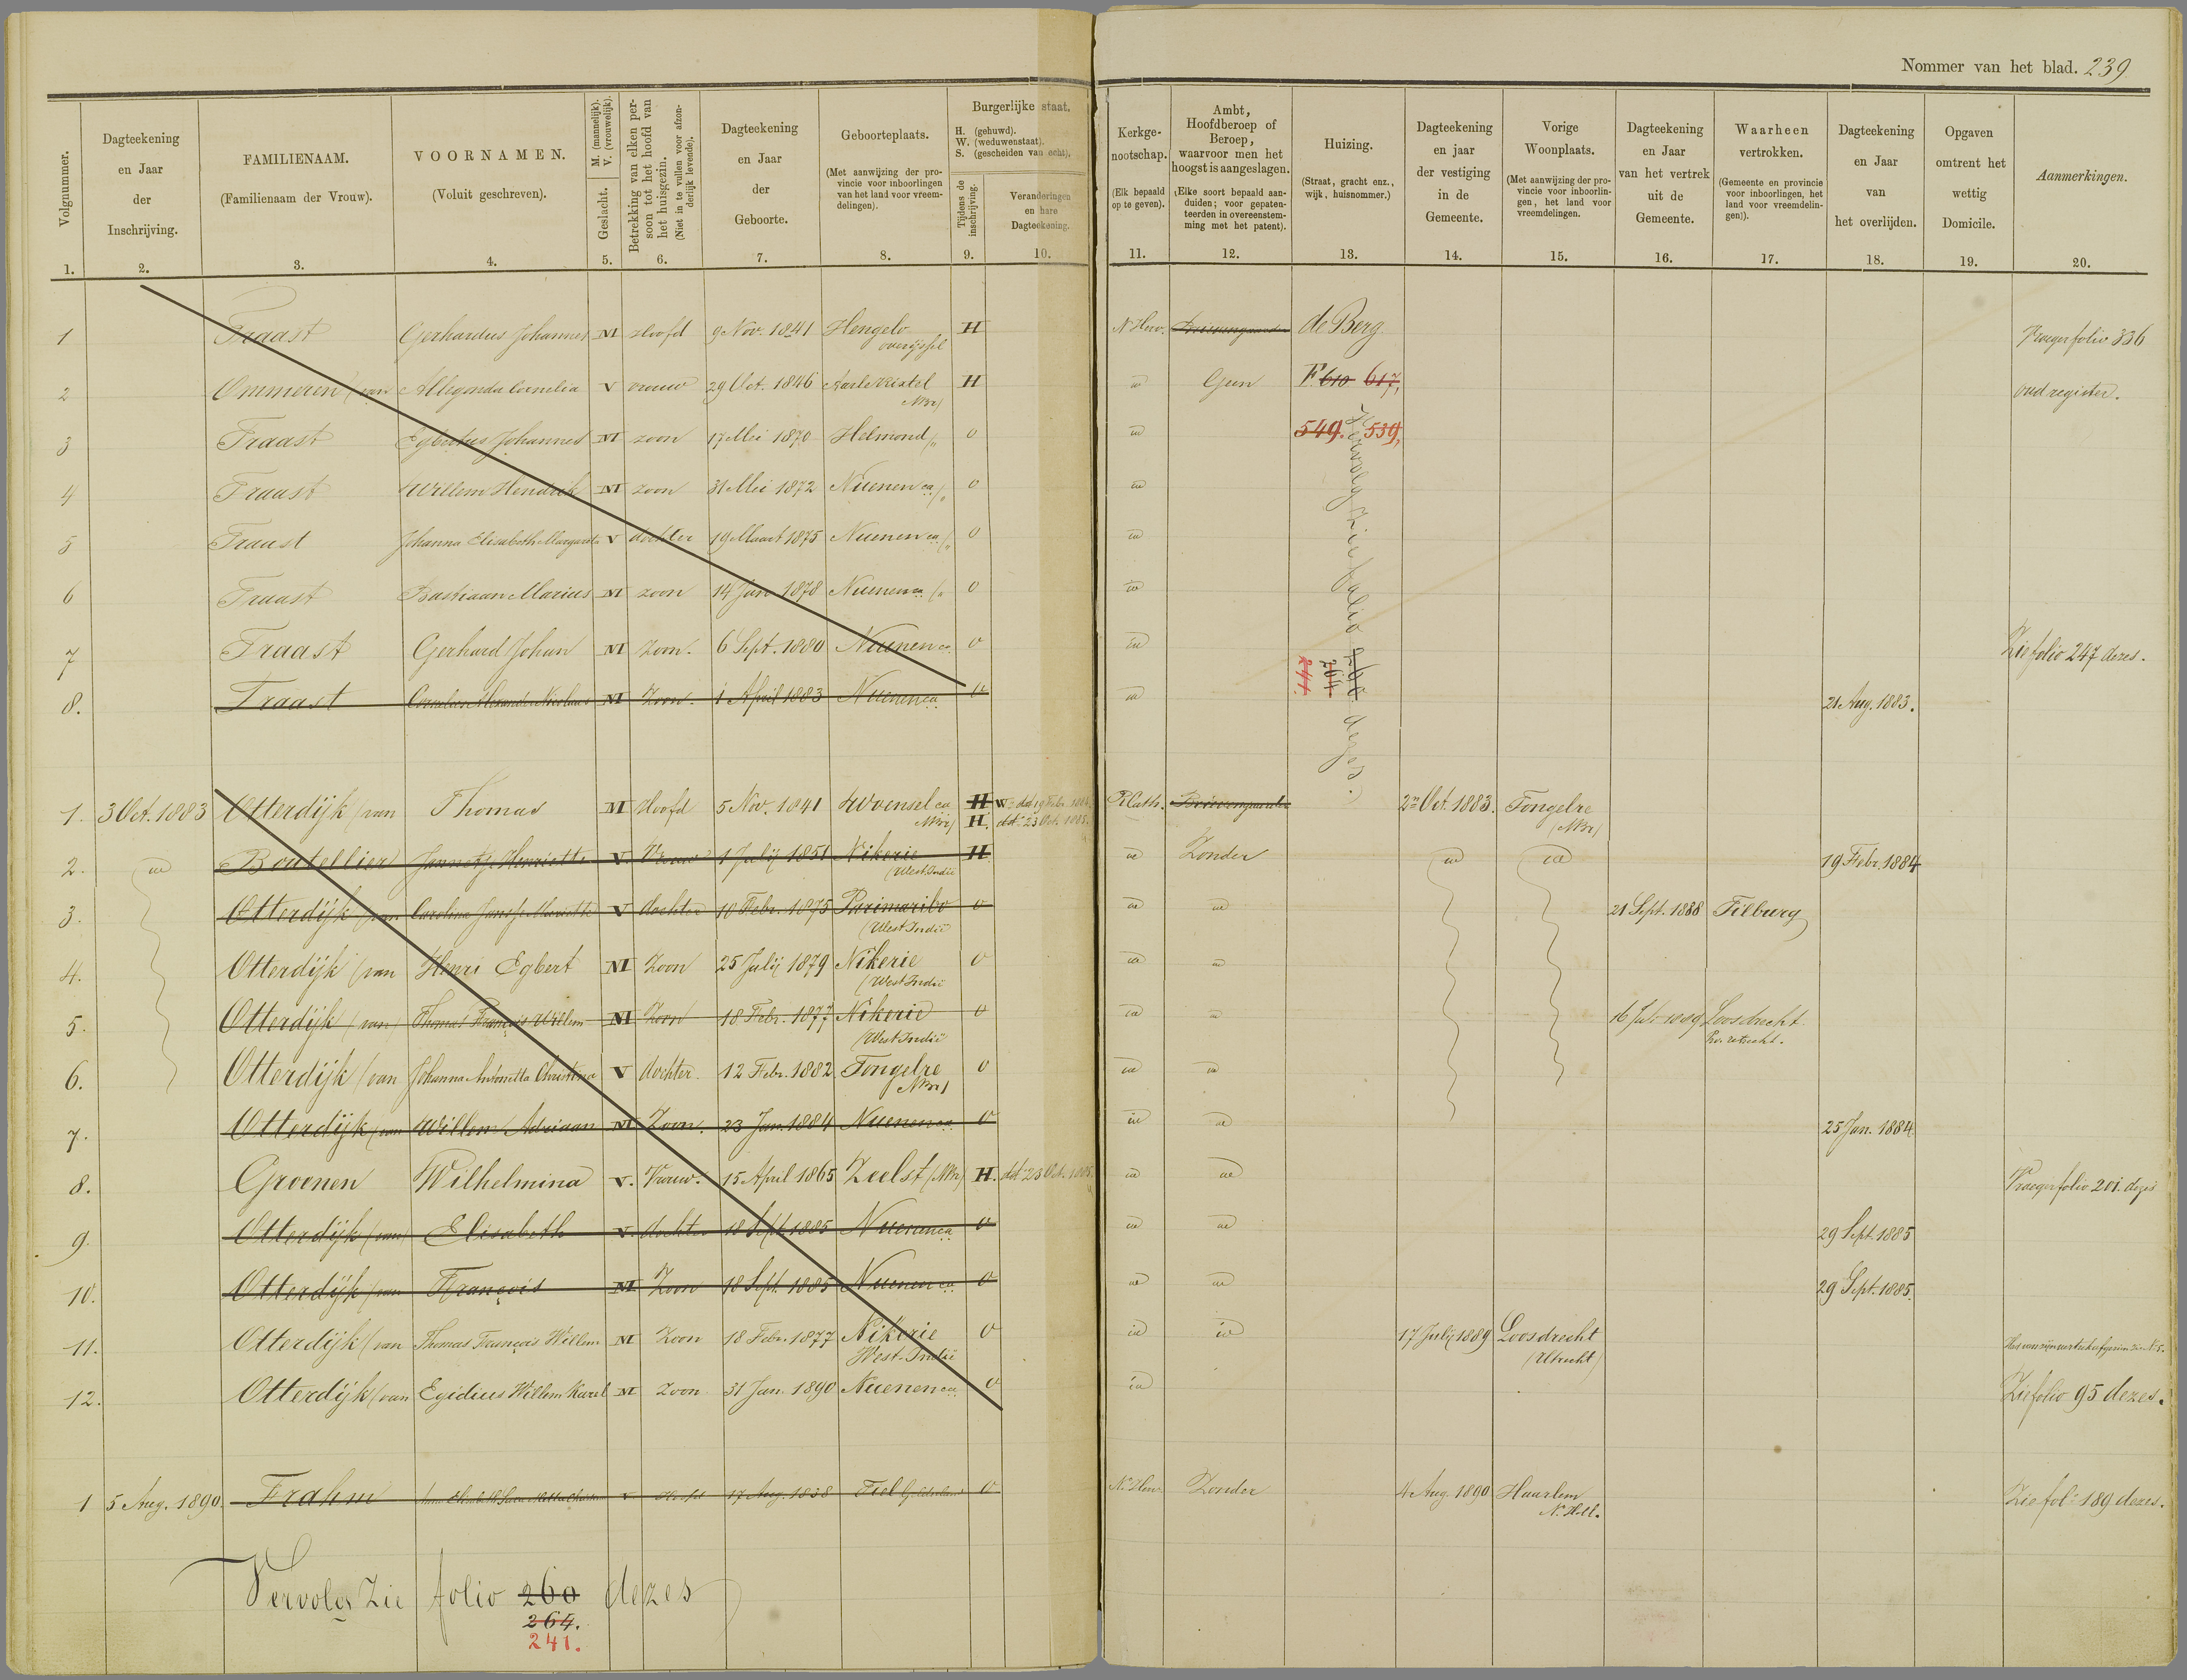 Nommer van het blad. 239
Volgnummer.
Dagteekening en Jaar der Inschrijving.
FAMILIENAAM. (Familienaam der Vrouw).
VOORNAMEN. (Voluit geschreven).
M. (mannelijk). V. (vrouwelijk). Geslacht.
Betrekking van elken persoon tot het hoofd van het huisgezin. (Niet in te vullen voor afzonderlijk levende).
Dagteekening en Jaar der Geboorte.
Geboorteplaats. (Met aanwijzing der provincie voor inboorlingen van het land voor vreemdelingen).
Burgerlijke staat. H. (gehuwd). W. (weduwenstaat). S. (gescheiden van echt).
Tijdens de inschrijving.
Veranderingen en hare Dagteekening.
Kerkgenootschap. (Elk bepaald op te geven).
Ambt, Hoofdberoep of Beroep, waarvoor men het hoogst is aangeslagen. (Elke soort bepaald aanduiden; voor gepatenteerden in overeenstemming met het patent).
Huizing. (Straat, gracht enz., wijk, huisnommer.)
Dagteekening en jaar der vestiging in de Gemeente.
Vorige Woonplaats. (Met aanwijzing der provincie voor inboorlingen, het land voor vreemdelingen.
Dagteekening en Jaar van het vertrek uit de Gemeente.
Waarheen vertrokken. (Gemeente en provincie voor inboorlingen, het land voor vreemdelingen)).
Dagteekening en Jaar van het overlijden.
Opgaven omtrent het wettig Domicile.
Aanmerkingen.
1. 2. 3. 4. 5. 6. 7. 8. 9. 10. 11. 12. 13. 14. 15. 16. 17. 18. 19. 20.
1 Traast Gerhardus Johannes M Hoofd 9 Nov. 1841 Hengelo overijssel H N Herv. de Berg Vroeger folio 336
2 Ommeren (van Allegonda Cornelia V vrouw 29 Oct. 1846 Aarle Rixtel NBr) H id Geen F 610 617, oud register.
3 Traast Egbertus Johannes M zoon 17 Mei 1870 Helmond (" O id 549. 539,
4 Traast Willem Hendrik M zoon 31 Mei 1872 Nuenen ca (" O id
5 Traast Johanna Elisabeth Margareta V dochter 19 Maart 1875 Nuenen ca (" O id
6 Traast Bastiaan Marius M zoon 14 Jan 1878 Nuenen ca (" O id
7 Traast Gerhard Johan M Zoon. 6 Sept. 1880 Nuenen ca O id Zie folio 247 dezes.
8. Traast Cornelis Alexander Nicolaas M Zoon. 1 April 1883 Nuenen ca O id 21 Aug. 1883.
Vervolg zie folio dezes.
244.
1. 3 Oct. 1883 Otterdijk (van Thomas M Hoofd 5 Nov. 1841 Woensel ca NBr) H W: dd 19 Febr. 1884. H. dd: 23 Oct. 1885. R Cath. 2n Oct. 1883. Tongelre (NBr)
2. id Boutellier Jannetje Henriette V. Vrouw 1 Julij 1851 Nikerie (West Indië H id Zonder id id 19 Febr. 1884
3. Otterdijk (van Carolina V dochter 10 Febr. 1875 Parimaribo (West Indië O id id 21 Sept. 1888 Tilburg
4. Otterdijk (van Henri Egbert M Zoon 25 Julij 1879 Nikerie (West Indië O id id
5. Otterdijk (van) Thomas François Willem M Zoon 18 Febr. 1877 Nikerie (West Indië O id id 16 Juli 1889 Loosdrecht Pr. utrecht.
6. Otterdijk (van Johanna Antonetta Christina V dochter 12 Febr. 1882 Tongelre NBr) O id id
7. Otterdijk (van Willem Adriaan M Zoon. 23 Jan. 1884 Nuenen ca O id id 25 Jan. 1884.
8. Groenen Wilhelmina V. Vrouw. 15 April 1865 Zeelst (NBr) H. dd: 23 Oct. 1885. id id Vroeger folio 201 dezes
9. Otterdijk (van) Elisabeth V. dochter 18 Sept 1885 Nuenen ca O id id 29 Sept. 1885
10. Otterdijk (van François M Zoon 18 Sept. 1885 Nuenen ca O id id 29 Sept. 1885.
11. Otterdijk (van Thomas François Willem M Zoon 18 Febr. 1877 Nikerie West-Indië O id id 17 Julij 1889 Loosdrecht (Utrecht)
12. Otterdijk (van Egidius Willem Karel M Zoon 31 Jan. 1890 Nuenen ca O id Zie folio 95 dezes.
1 5 Aug. 1890 Frahm V Hoofd 17 Aug. 1838 Tiel Gelderland O N. Herv. Zonder 4 Aug. 1890 Haarlem N. Holl. Zie fol: 189 dezes.
Vervolg Zie folio 260 dezes
264.
241.